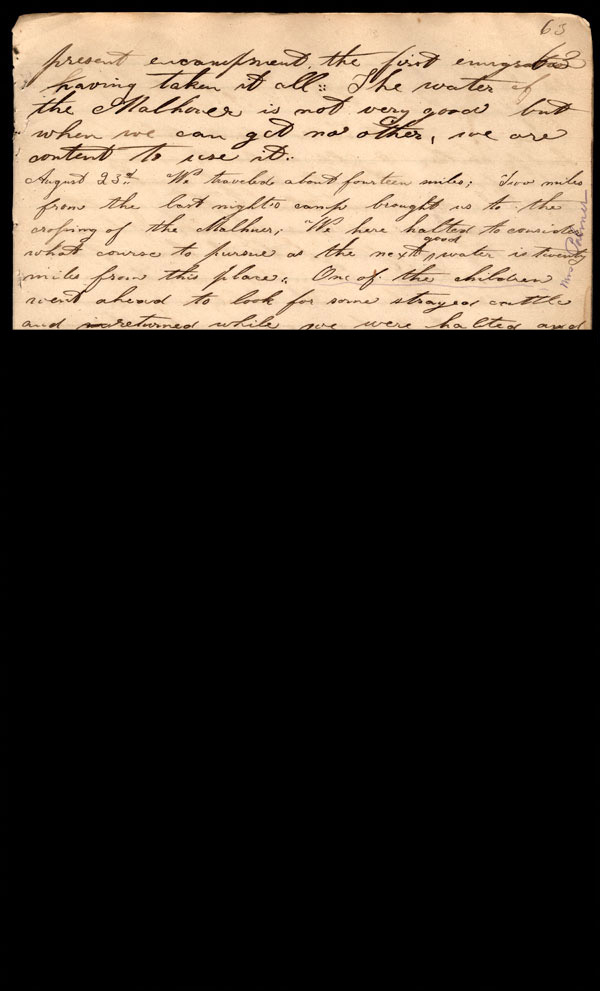 63
present encampment, the first emigrants 63
having taken it all:: The water of
the Malhour is not very good but
when we can get no other, we are
content to use it:
August 23rd. We traveled about fourteen miles; Two miles
from the last night's camp brought us to the
crossing of the Malhuer; We here halted to consider
good
what course to pursue as the next water is twenty
miles from this place. One of the children
went ahead to look for some strayed cattle
and returned while we were halted and
Mrs Palmer